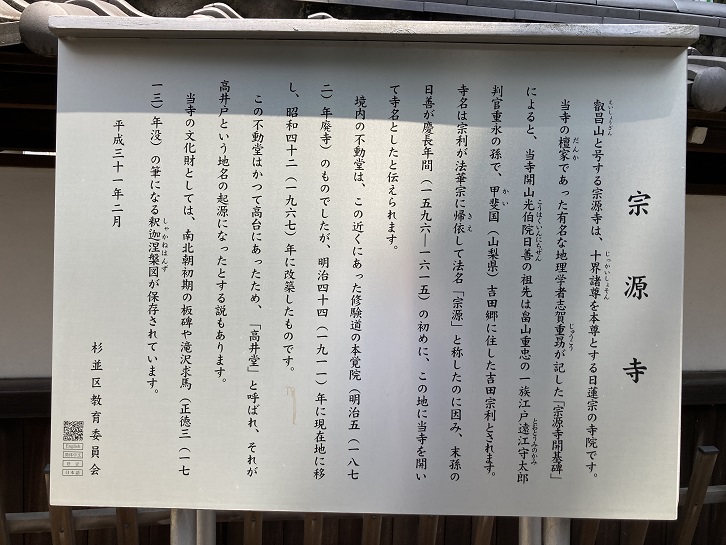 宗源寺
叡昌山と号する宗源寺は、十界諸尊を本尊とする日蓮宗の寺院です。
当寺の檀家であった有名な地理学者志賀重昻が記した「宗源寺開基碑」
によると、当寺開山光伯院日善の祖先は畠山重忠の一族江戸遠江守太郎
判官重永の孫で、甲斐国（山梨県）吉田郷に住した吉田宗利とされます。
寺名は宗利が法華宗に帰依して法名「宗源」と称したのに因み、末孫の
日善が慶長年間（一五九六―一六一五）の初めに、この地に当寺を開い
て寺名としたと伝えられます。
境内の不動堂は、この近くにあった修験道の本覚院（明治五（一八七
二）年廃寺）のものでしたが、明治四十四（一九一一）年に現在地に移
し、昭和四十二（一九六七）年に改築したものです。
この不動堂はかつて高台にあったため、「高井堂」と呼ばれ、それが
高井戸という地名の起源になったとする説もあります。
当寺の文化財としては、南北朝初期の板碑や滝沢求馬（正徳三（一七
一三）年没）の筆になる釈迦涅槃図が保存されています。
平成三十一年二月
杉並区教育委員会
English
日本語